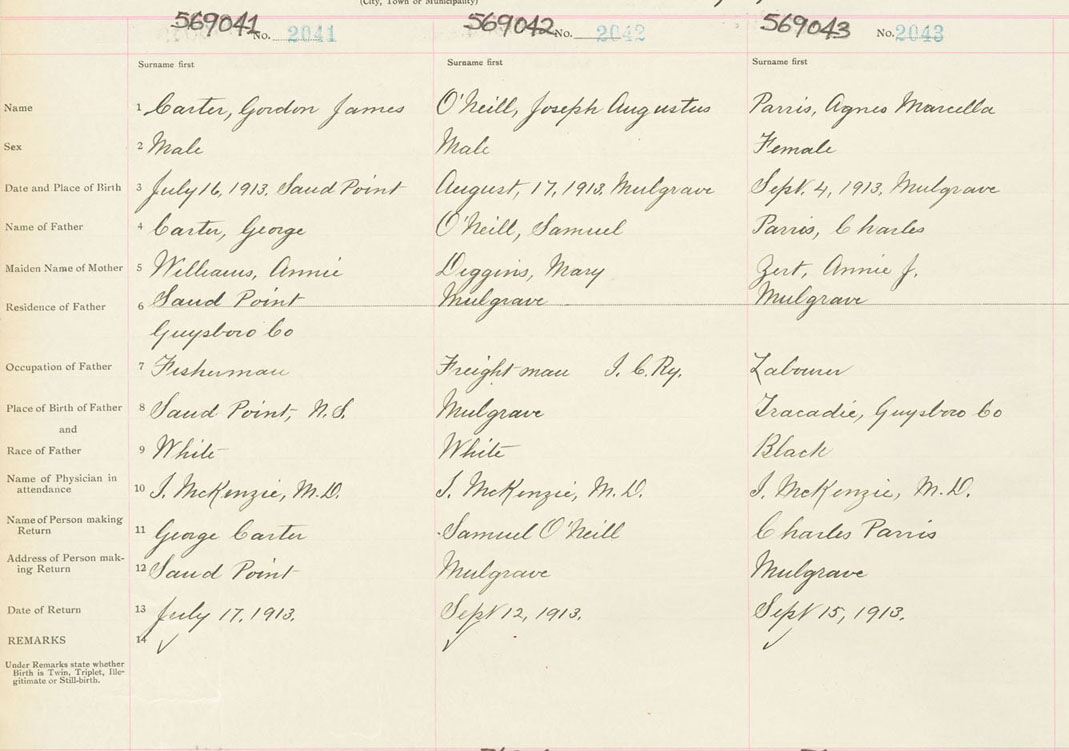 (City, Town or Municipality)
569041 No. 2041 569042 No. 2042 569043 No. 2043
Surname first Surname first Surname first
Name 1 Carter, Gordon James O'Neill, Joseph Augustus Parris, Agnes Marcella
Sex 2 Male Male Female
Date and Place of Birth 3 July 16, 1913, Sand Point August, 17, 1913, Mulgrave Sept. 4, 1913, Mulgrave
Name of Father 4 Carter, George O'Neill, Samuel Parris, Charles
Maiden Name of Mother 5 Williams, Annie Diggins, Mary Annie J.
Residence of Father 6 Sand Point Mulgrave Mulgrave
Guysboro Co
Occupation of Father 7 Fisherman Freight man I. C. Ry. Labourer
Place of Birth of Father 8 Sand Point, N.S. Mulgrave Tracadie, Guysboro Co
and
Race of Father 9 White White Black
Name of Physician in
attendance 10 J. McKenzie, M.D. J. McKenzie, M.D. J. McKenzie, M.D.
Name of Person making
Return 11 George Carter Samuel O'Neill Charles Parris
Address of Person mak-
ing Return 12 Sand Point Mulgrave Mulgrave
Date of Return 13 July 17, 1913. Sept 12, 1913. Sept 15, 1913.
REMARKS 14
Under Remarks state whether
Birth is Twin, Triplet, Ille-
gitimate or Still-birth.